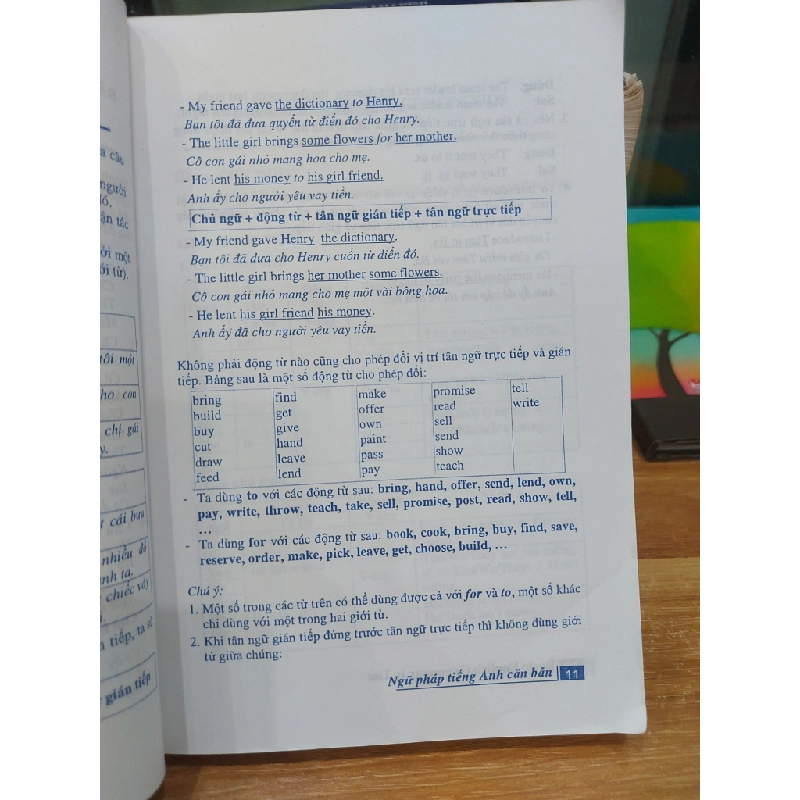 - My friend gave the dictionary to Henry.
Bạn tôi đã đưa quyển từ điển đó cho Henry.
- The little girl brings some flowers for her mother.
Cô con gái nhỏ mang hoa cho mẹ.
- He lent his money to his girl friend.
Anh ấy cho người yêu vay tiền.
Chủ ngữ + động từ + tân ngữ gián tiếp + tân ngữ trực tiếp
- My friend gave Henry the dictionary.
Bạn tôi đã đưa cho Henry cuốn từ điển đó.
- The little girl brings her mother some flowers.
Cô con gái nhỏ mang cho mẹ một vài bông hoa.
- He lent his girl friend his money.
Anh ấy đã cho người yêu vay tiền.
Không phải động từ nào cũng cho phép đổi vị trí tân ngữ trực tiếp và gián
tiếp. Bảng sau là một số động từ cho phép đổi:
bring find make promise tell
build get offer read write
buy give own sell
cut hand paint send
draw leave pass show
feed lend pay teach
- Ta dùng to với các động từ sau: bring, hand, offer, send, lend, own,
pay, write, throw, teach, take, sell, promise, post, read, show, tell,
...
- Ta dùng for với các động từ sau: book, cook, bring, buy, find, save,
reserve, order, make, pick, leave, get, choose, build, ...
Chú ý:
1. Một số trong các từ trên có thể dùng được cả với for và to, một số khác
chỉ dùng với một trong hai giới từ.
2. Khi tân ngữ gián tiếp đứng trước tân ngữ trực tiếp thì không dùng giới
từ giữa chúng:
Ngữ pháp tiếng Anh căn bản 11